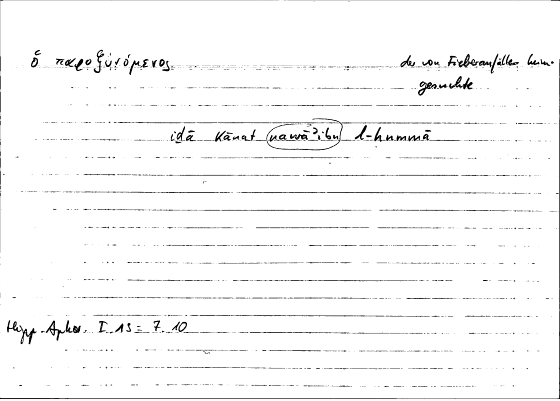 ὁ παροξυνόμενος
der von Fieberanfällen heim-
gesuchte
iḏā kānat nawāʾibu l-ḥummā
Hipp. Aphor. I 13 = 7.10